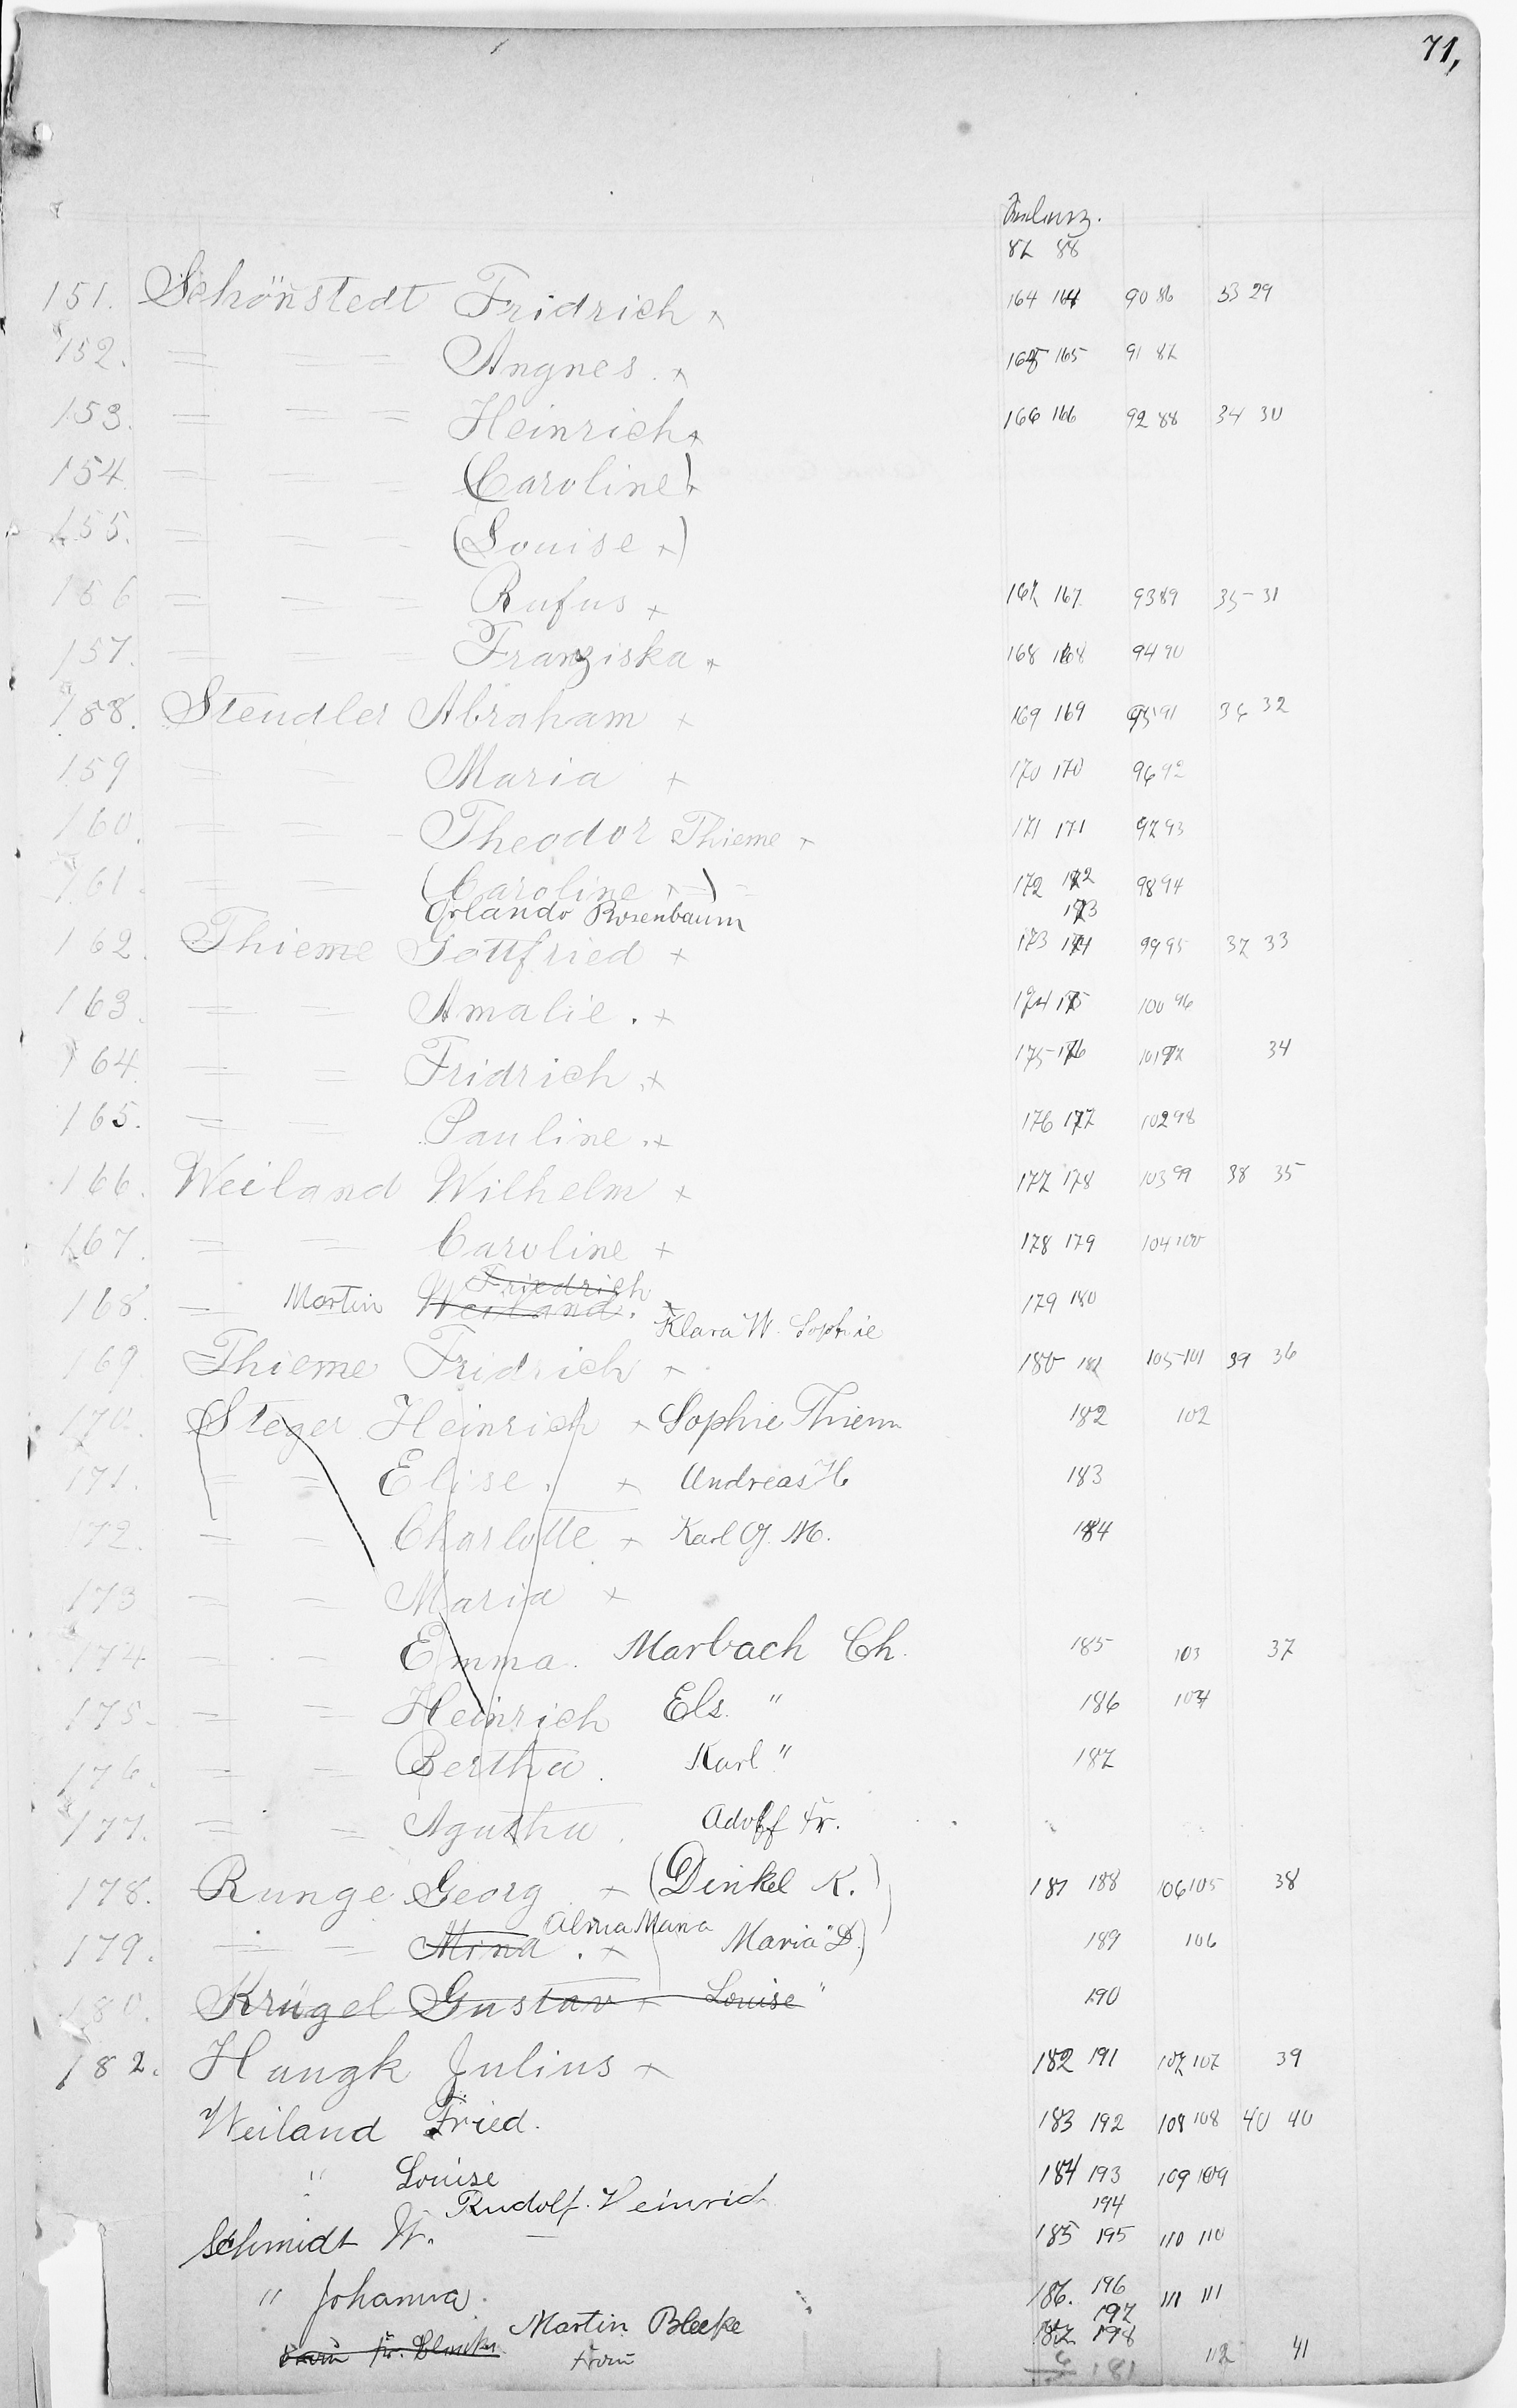 71,
87 88
151. Schönstedt Fridrich x 164 164 90 86 33 29
152. = = = Angnes. x 165 165 91 87
153. = = = Heinrich x 166 166 92 88 34 30
154. = = = (Caroline) x
155. = = - (Louise x)
156 = = = Rufus x 167 167 93 89 35 31
157. = = = Franziska x 168 168 94 90
158. Steudler Abraham x 169 169 95 91 36 32
159 = = Maria x 170 170 96 92
160. = = - Theodor Thieme x 171 171 97 93
161. = = (Caroline x -) = 172 172 98 94
Orlando Rosenbaum 173
162. Thieme Gottfried x 173 174 99 95 37 33
163. = = Amalie. x 174 175 100 96
164. = = Fridrich. x 175 176 101 97 34
165. = = Pauline. x 176 177 102 98
166. Weiland Wilhelm x 177 178 103 99 38 35
167. = = Caroline x 178 179 104 100
Friedrich
168. = Martin Weiland. x 179 180
Klara W. Sophie
169. Thieme Fridrich x 180 181 105 101 39 36
170. Steger Heinrich x Sophie Thiem 182 102
171. = = Elise. x Andreas H 183
172. = = Charlotte x Karl G. M. 184
173 = = Maria x
174 - - = Emma. Marbach Ch. 185 103 37
175. = = Heinrich Els. " 186 104
176. = = Bertha. Karl " 187
177. = = Agatha. Adolf Fr.
178. Runge Georg x (Dinkel K.) 181 188 106 105 38
Alma Maria
179. = = Mina. x Maria D.) 189 106
180. Krügel Gustav x Louise " 190
182. Haugk Julius x 182 191 107 107 39
Weiland Fried. 183 192 108 108 40 40
" Louise 184 193 109 109
Rudolf. Heinrich 194
Schmidt W. — 185 195 110 110
" Johanna. 186. 196 111 111
Martin Bleeke 197
187 198
Frau 181 112 41